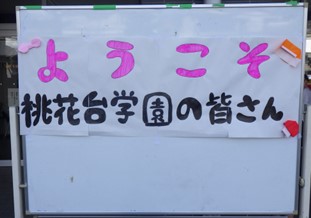 ようこそ
桃花台学園の皆さん